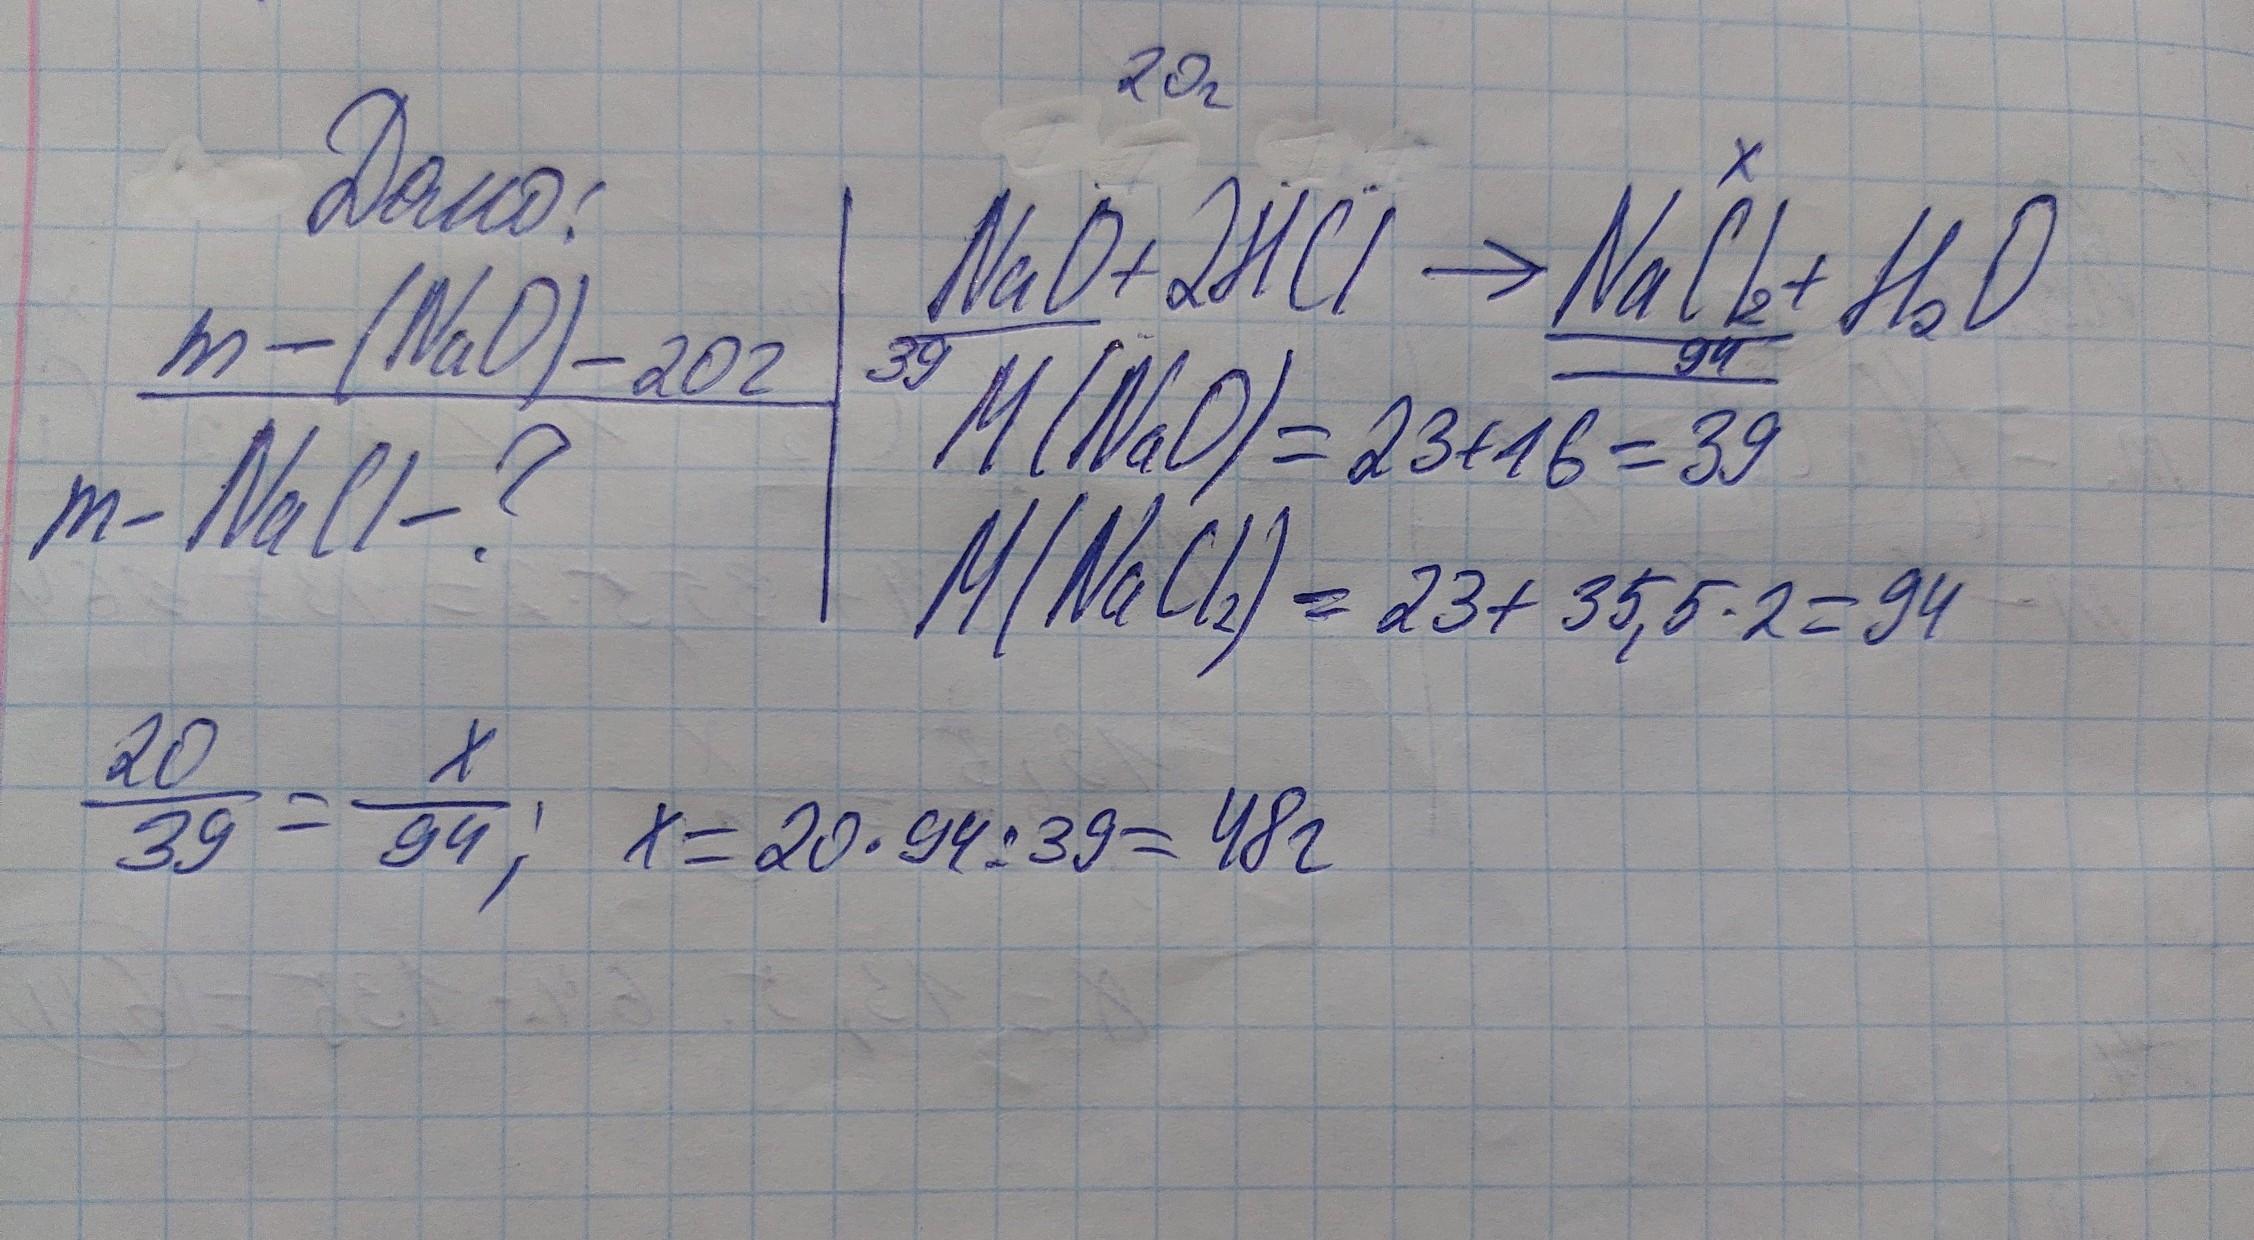 20г
Дано:
m-(NaO)-20г
m-NaCl-?
x
NaO+2HCl → NaCl₂+H₂O
39
94
M(NaO)=23+16=39
M(NaCl₂)=23+35,5·2=94
20/39=x/94; x=20·94:39=48г